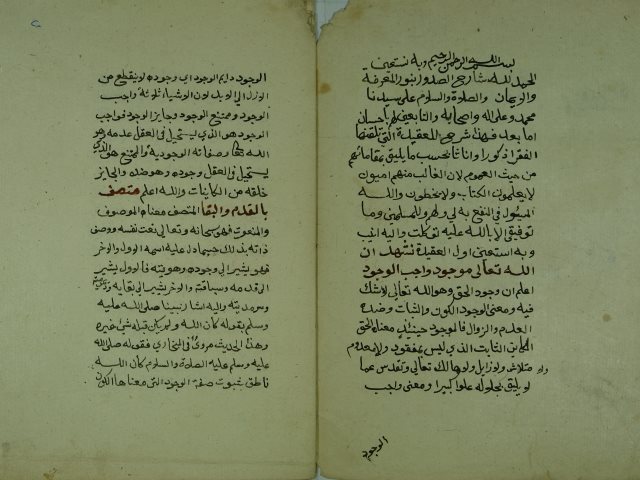 بسم الله الرحمن الرحيم وبه نستعين
الحمد لله شارح الصدور بنور المعرفة
والايمان والصلاة والسلام على سيدنا
محمد وعلى اله واصحابه والتابعين لهم باحسان
اما بعد فهذا شرح العقيدة التى تلقنها
الفقرا ذكورا واناثا بحسب ما يليق بمقاماتهم
من حيث العموم لان الغالب منهم اميون
لا يعلمون الكتاب ولا يخطون والله
المسؤل فى النفع به لى ولهم وللمسلمين وما
توفيقى الا بالله عليه توكلت واليه انيب
وبه استعين اول العقيدة نشهد ان
الله تعالى موجود واجب الوجود
اعلم ان وجود الحق وهو الله تعالى لا شك
فيه ومعنى الوجود الكون والثبات وضده
العدم والزوال فالموجود حينئذ معناه الحق
الكاين الثابت الذى ليس بمفقود ولا معدوم
ولا متلاش ولا زايل ولا هالك تعالى وتقدس عما
لا يليق بجلاله علوا كبيرا ومعنى واجب
الوجود
الوجود دايم الوجود اى وجوده لا ينقطع من
الازل الى الابد لان الاشياء ثلاثة واجب
الوجود وممتنع الوجود وجايز الوجود فواجب
الوجود هو الذى يستحيل فى العقل عدمه وهو
الله تعالى وصفاته الوجودية والممتنع هو الذى
يستحيل فى العقل وجوده وهو ضده والجايز
خلقه من الكاينات والله اعلم متصف
بالقدم والبقا المتصف معناه الموصوف
والمنعوت فهو سبحانه وتعالى نعت نفسه ووصف
ذاته بذلك حيثما دل عليه اسمه الاول والاخر
فهو يشير الى وجوده وهويته فالاول يشير
الى قدمه وسباقته والاخر يشير الى بقايه
وسرمديته واليه اشار نبينا صلى الله عليه
وسلم بقوله كان الله ولم يكن قبله شئ غيره
وهذا الحديث مروى فى البخارى فقوله صلى الله
عليه وسلم عليه الصلاة والسلام كان الله
ناطق بثبوت صفة الوجود التى معناها الكون